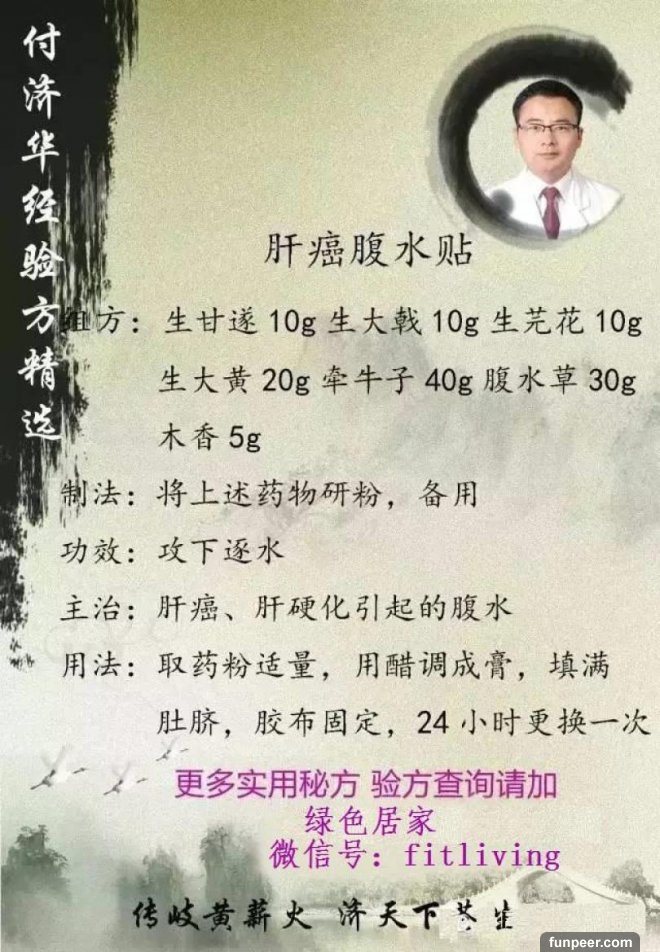 付济华经验方精选
肝癌腹水贴
组方：生甘遂10g 生大戟10g 生芫花10g
生大黄20g 牵牛子40g 腹水草30g
木香5g
制法：将上述药物研粉，备用
功效：攻下逐水
主治：肝癌、肝硬化引起的腹水
用法：取药粉适量，用醋调成膏，填满
肚脐，胶布固定，24小时更换一次
更多实用秘方 验方查询请加
绿色居家
微信号：fitliving
传岐黄薪火 济天下苍生
funpeer.com